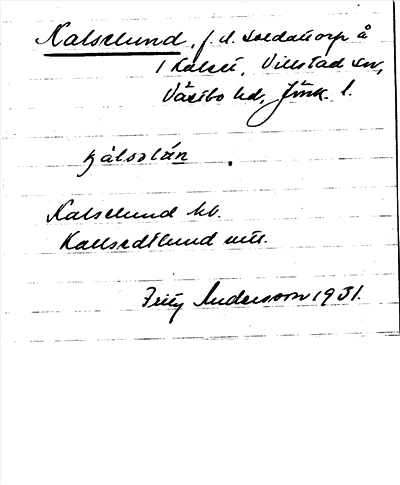 Kalselund, f.d. soldattorp å
1 Kalset, Villstad sn,
Västbo hd, Jönk. l.
kálsəlán
Kalselund hb.
Kallsedtlund utt.
Fritz Andersson 1931.